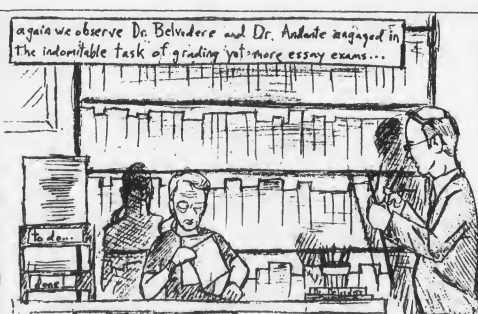 again we observe Dr. Belvedere and Dr. Andante engaged in
the indomitable task of grading yet more essay exams...
to do...
done
Dr. Belvedere